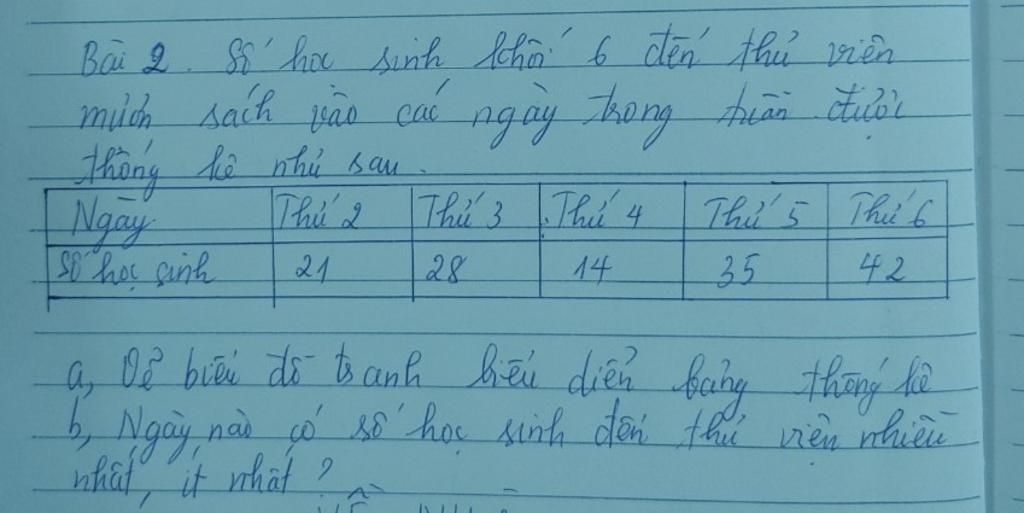 Bài 2. Số học sinh khối 6 đến thư viện
mượn sách vào các ngày trong tuần được
thống kê như sau.
Ngày Thứ 2 Thứ 3 Thứ 4 Thứ 5 Thứ 6
Số học sinh 21 28 14 35 42
a, Vẽ biểu đồ tranh biểu diễn bảng thống kê
b, Ngày nào có số học sinh đến thư viện nhiều
nhất, ít nhất ?